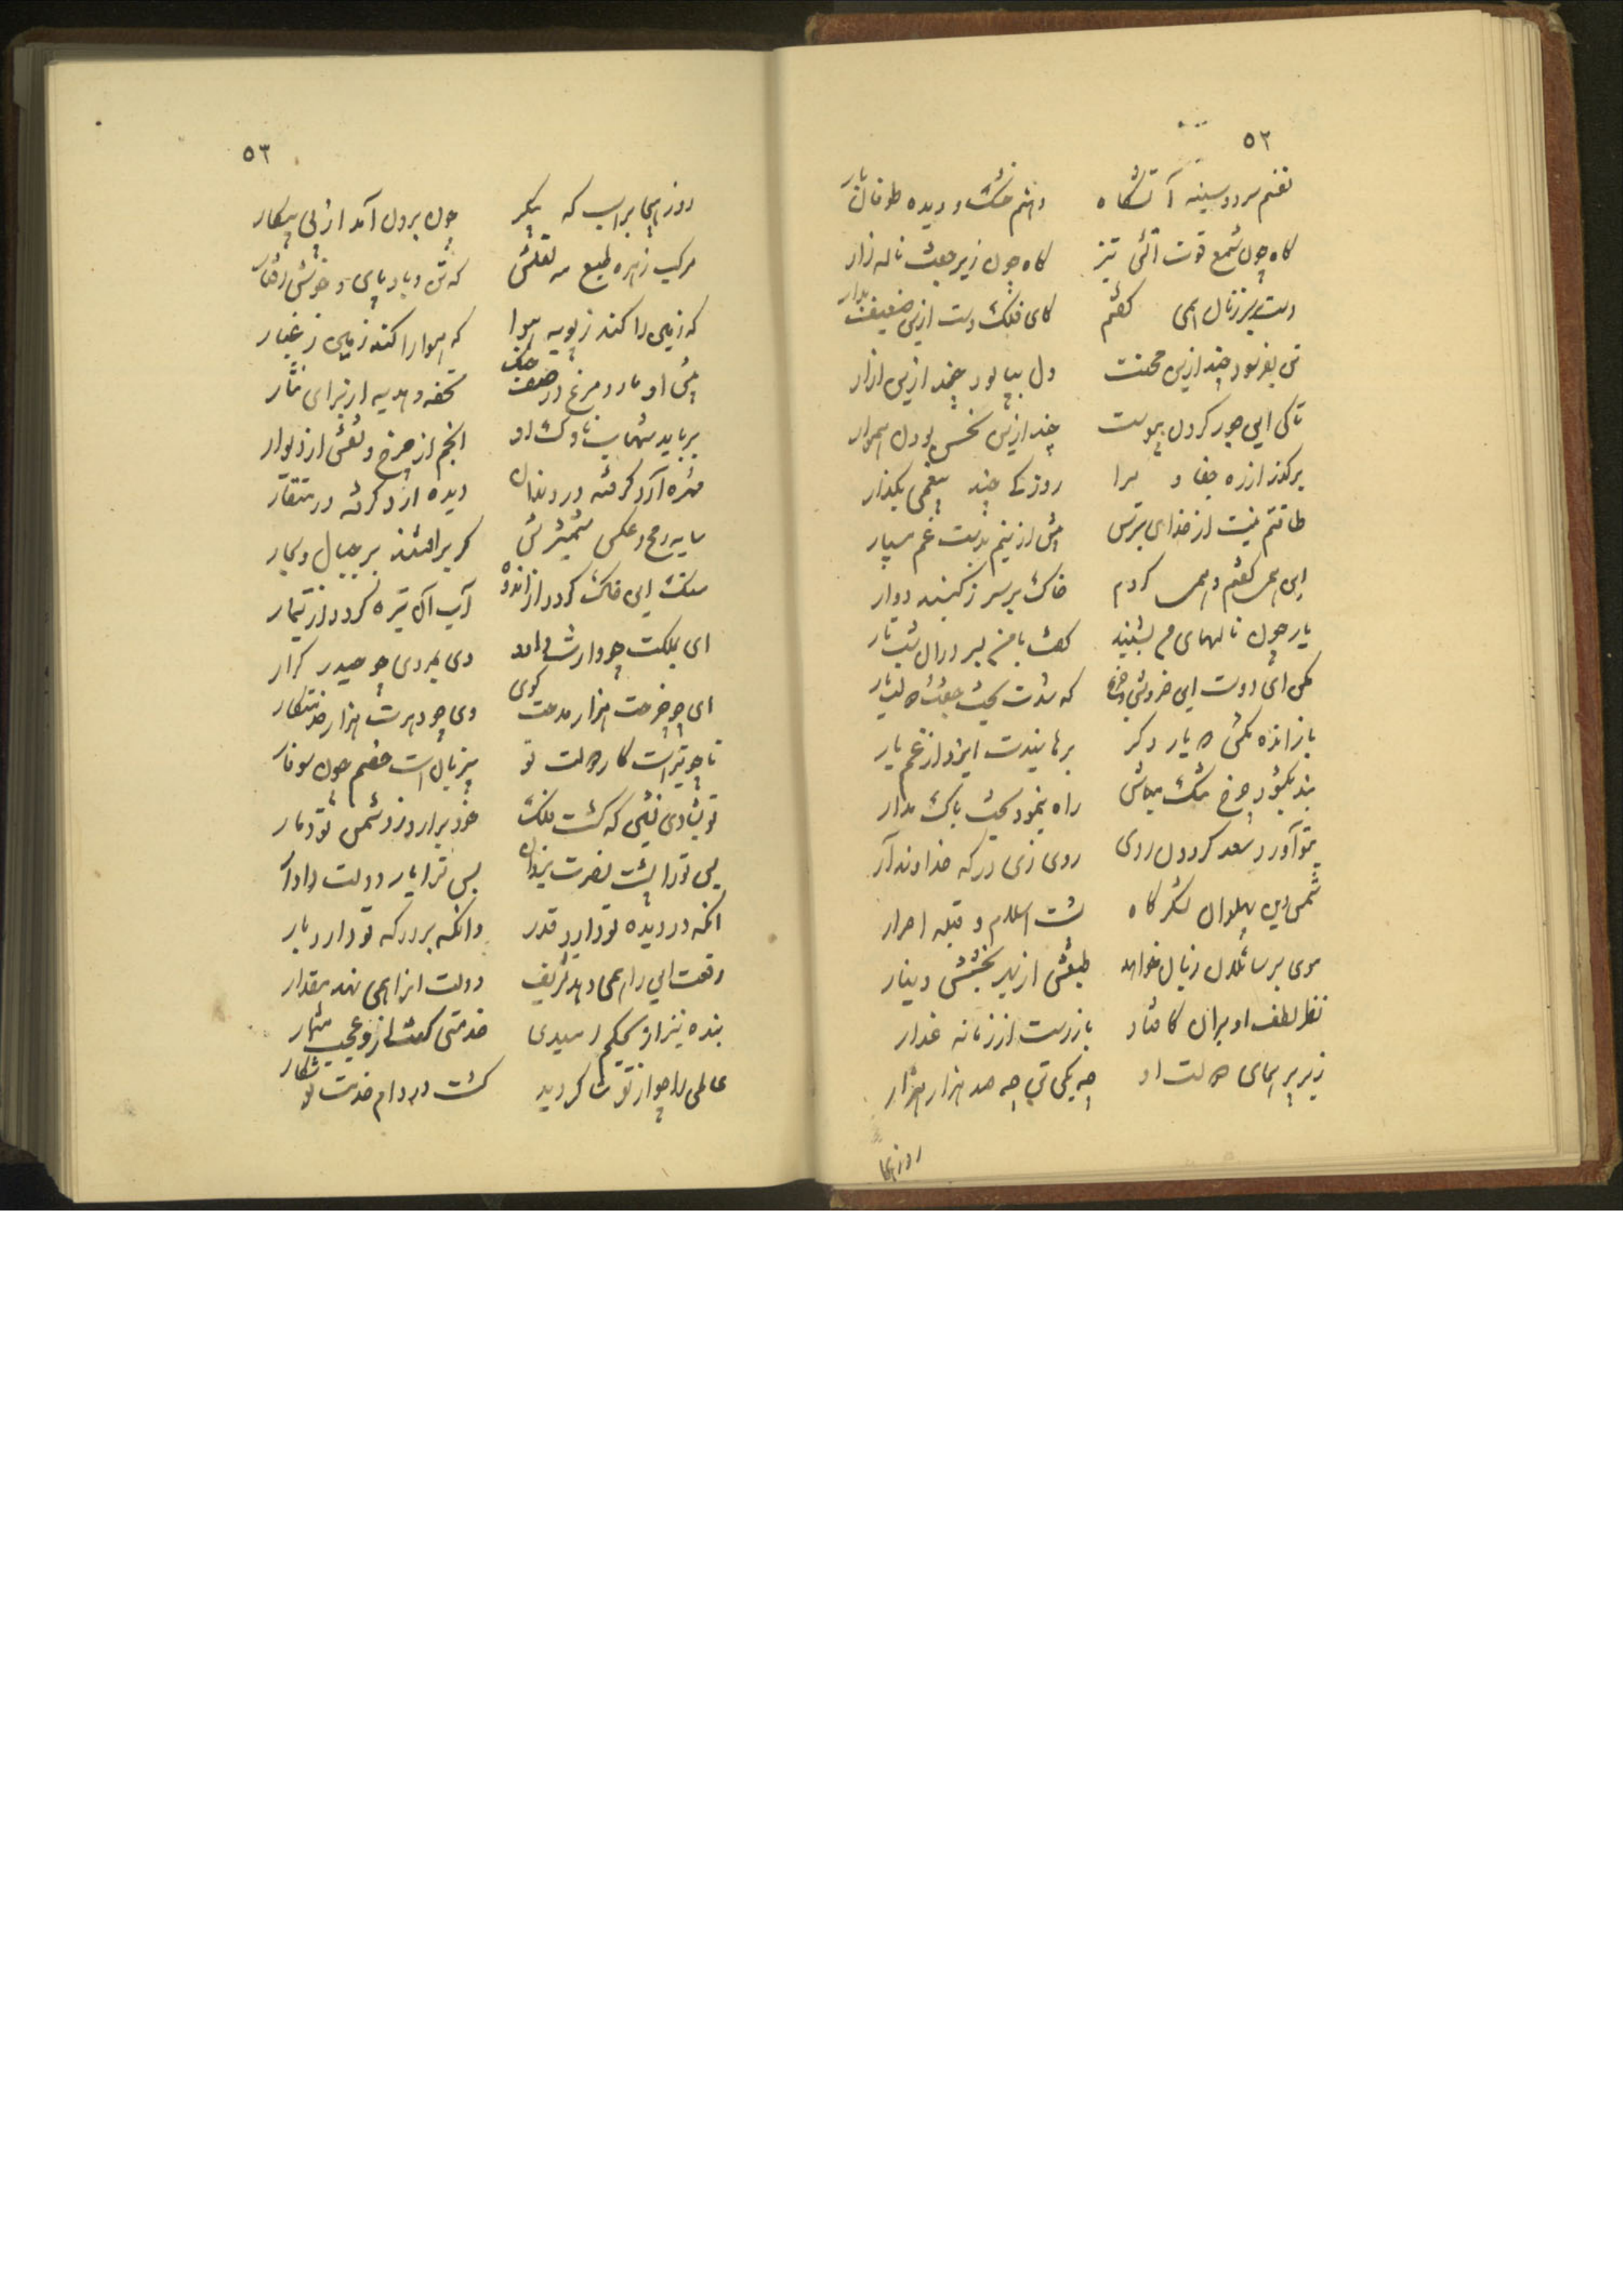 ۵۲
نفسم سرد و سینه آتشگاه دهنم خشک و دیده طوفان بار
گاه چون شمع قوت آتش تیز گاه چون زیر جفت ناله زار
دست بر سر زنان همی گفتم کای فلک دست ازین ضعیف بدار
تن بفرسود چند ازین محنت دل بیالود چند ازین آزار
تا کی این جور کردن پیوست چند ازین نحس بودن هموار
برگذر از ره جفا و مرا روزکی چند بیغمی بگذار
طاقتم نیست از خدای بترس بیش ازینم بدست غم مسپار
این همی گفتم و همی کردم خاک بر سر ز گنبد دوار
یار چون نالهای من بشنید گفت با من بسر در آن شب تار
مکن ای دوست این خروش و جزع که شدت بخت جفت و دولت یار
باز انده مکش که بار دگر برهانیدت ایزد از غم یار
بند بگشود چرخ تنگ مباش راه بنمود بخت باک مدار
بتو آورد سعد گردون روی روی زی درگه خداوند آر
شمس دین پهلوان لشکر گاه پشت اسلام و قبله احرار
موی بر سائلان زبان خواهد طبعش از بهر بخشش دینار
نظر لطف او بر آن کافتاد باز رست از زمانه غدار
زیر پر همای دولت او چه یکی تن چه صد هزار هزار
روز هیجا
۵۳
روز هیجا بر اسب که پیکر چون برون آمد از پی پیکار
مرکب زهره طبع مه نعلش که تن و باد پای و خوش رفتار
که زمین را کند ز پویه هوا که هوا را کند زمین ز غبار
پیش او مار و مرغ در صف جنگ تحفه و هدیه از برای نثار
برباید شهاب ناوک او انجم از چرخ و نقش از دیوار
مهره آرد گرفته در دندان دیده آرد گرفته در منقار
سایه رمح و عکس شمشیرش گر بر افتند بر جبال و بحار
سنگ این خاک گردد از اندوه آب آن تیره گردد از تیمار
ای بملکت چو وارث داود وی بمردی چو حیدر کرار
ای چو چرخت هزار مدحت گوی وی چو دهرت هزار خدمتکار
تا چو تیر است کار دولت تو بی زبان است خصم چون سوفار
تو بشادی نشین که گشت فلک خود برآرد ز دشمن تو دمار
بس تو را پشت نصرت یزدان بس ترا یار دولت دادار
آنکه در دیده تو دارد قدر وانکه بر درگه تو دارد بار
رفعت این را همی دهد تشریف دولت آنرا همی نهد مقدار
بنده نیز ار بحکم امیدی خدمتی گفت ازو عجب مشمار
عالمی را چو از تو شاکر دید گشت در دام خدمت تو شکار